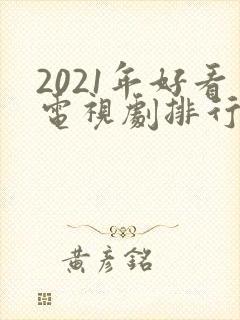 2021年好看
電視劇排行
黃彥銘